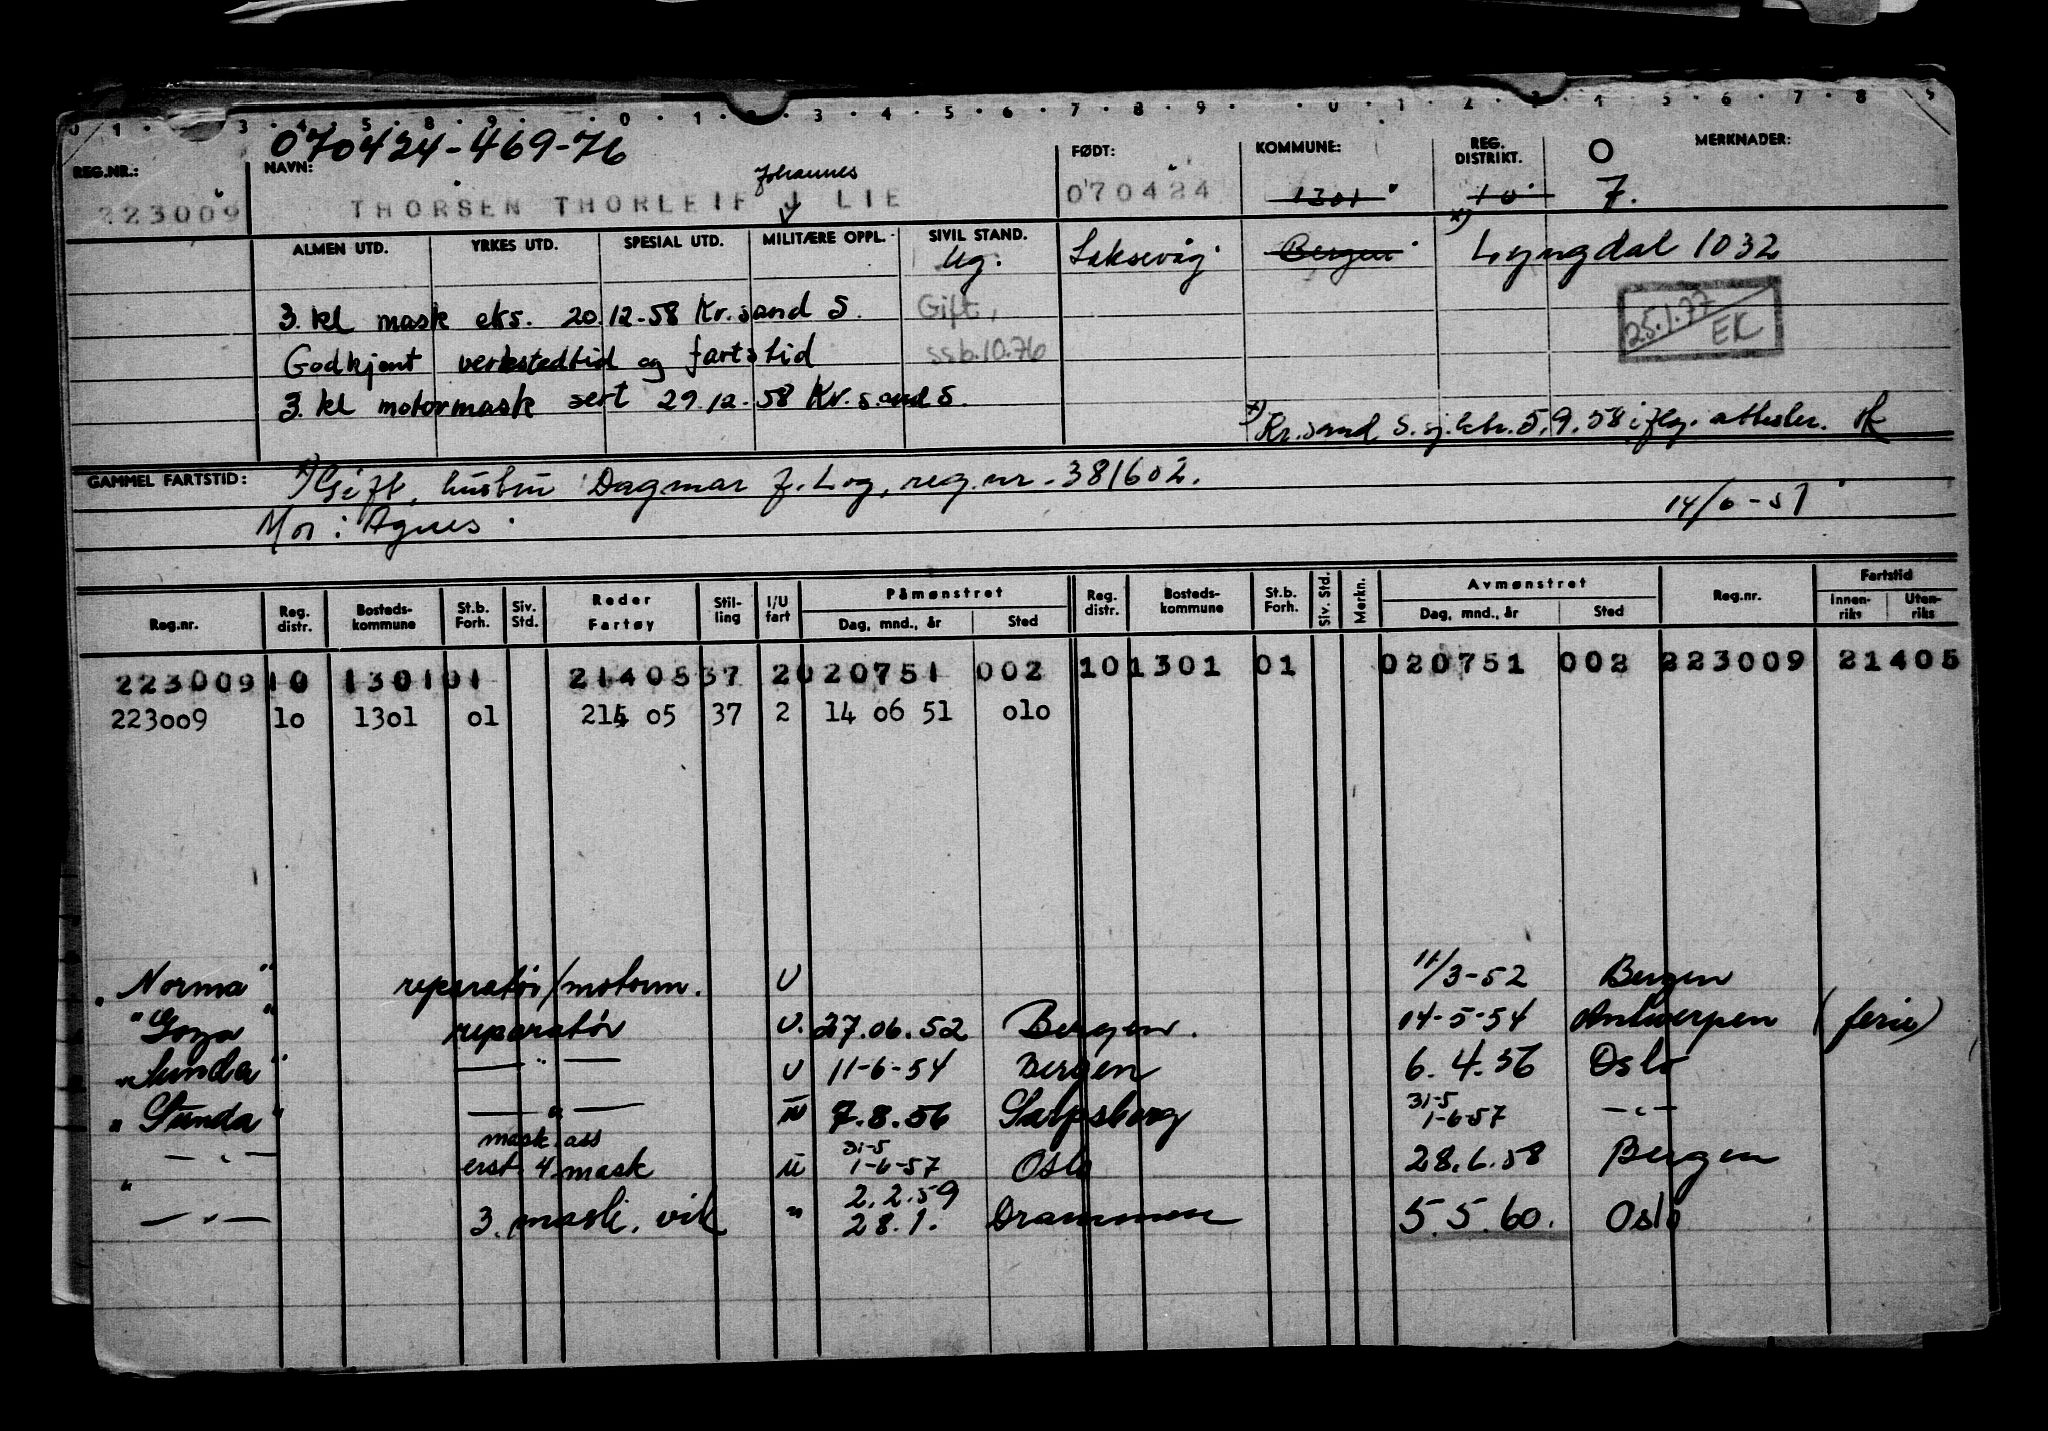 070424-469-76
REG.NR.: NAVN: FØDT: KOMMUNE: REG. DISTRIKT. O MERKNADER:
Johannes
223009 THORSEN THORLEIF J LIE 070424 1301 10 7.
ALMEN UTD. YRKES UTD. SPESIAL UTD. MILITÆRE OPPL. SIVIL STAND.
Ug. Laksevåg Bergen x) Lyngdal 1032
3. kl mask eks. 20.12-58 Kr.sand S. Gift,
25.1.77 EK
Godkjent verkstedtid og fartstid ssb.10.76
3. kl motormask sert 29.12-58 Kr.sand S.
x) Kr.sand S. sj.ktr. 5.9.58 iflg. attester.
GAMMEL FARTSTID: x) Gift, hustru Dagmar f. Log, reg.nr. 381602.
Mor: Agnes 14/6-51
Reg.nr. Reg. distr. Bosteds-kommune St.b. Forh. Siv. Std. Reder Fartøy Stil-ling I/U fart Påmønstret Dag, mnd., år Sted Reg. distr. Bosteds-kommune St.b. Forh. Siv. Std. Merkn. Avmønstret Dag, mnd., år Sted Reg.nr. Fartstid Innen-riks Uten-riks
223009 10 1301 01 21405 37 2 020751 002 10 1301 01 020751 002 223009 21405
223009 10 1301 01 214 05 37 2 14 06 51 010
"Norma" reparatør/motorm. U 11/3-52 Bergen
"Goya" reparatør U. 27.06.52 Bergen. 14-5-54 Antwerpen (ferie)
"Sunda" —"— U 11-6-54 Bergen 6.4.56 Oslo
"Sunda" —"— U 7.8.56 Sarpsborg 31-5 1-6-57 —"—
mask.ass
—"— erst. 4. mask U 31-5 1-6-57 Oslo 28.6.58 Bergen
—"— 3. mask. vik " 2.2.59 28.1. Drammen 5.5.60. Oslo